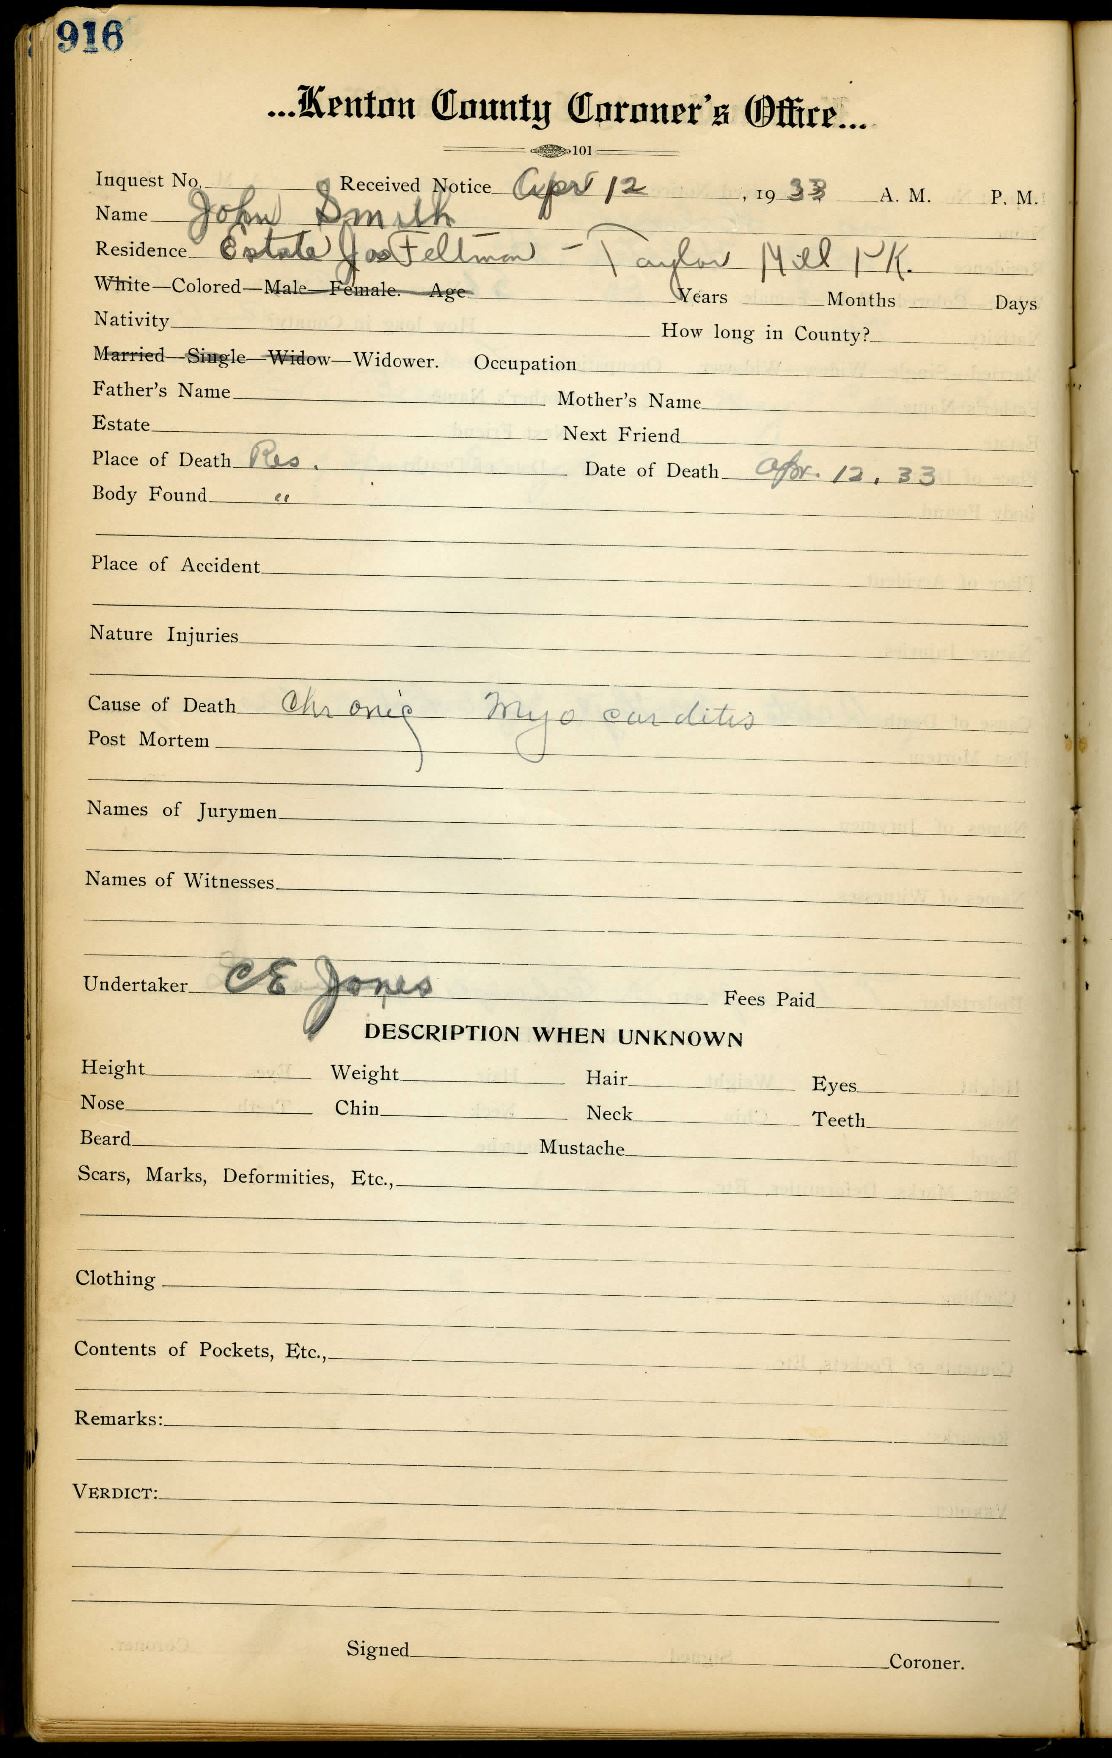 916
...Kenton County Coroner's Office...
101
Inquest No. Received Notice Apr 12, 1933 A. M. P. M.
Name John Smith
Residence Estate Jos Feltman - Taylor Mill PK.
White—Colored—Male—Female. Age Years Months Days
Nativity How long in County?
Married—Single—Widow—Widower. Occupation
Father's Name Mother's Name
Estate Next Friend
Place of Death Res. Date of Death Apr. 12, 33
Body Found "
Place of Accident
Nature Injuries
Cause of Death Chronic Myocarditis
Post Mortem
Names of Jurymen
Names of Witnesses
Undertaker CE Jones Fees Paid
DESCRIPTION WHEN UNKNOWN
Height Weight Hair Eyes
Nose Chin Neck Teeth
Beard Mustache
Scars, Marks, Deformities, Etc.,
Clothing
Contents of Pockets, Etc.,
Remarks:
VERDICT:
Signed Coroner.